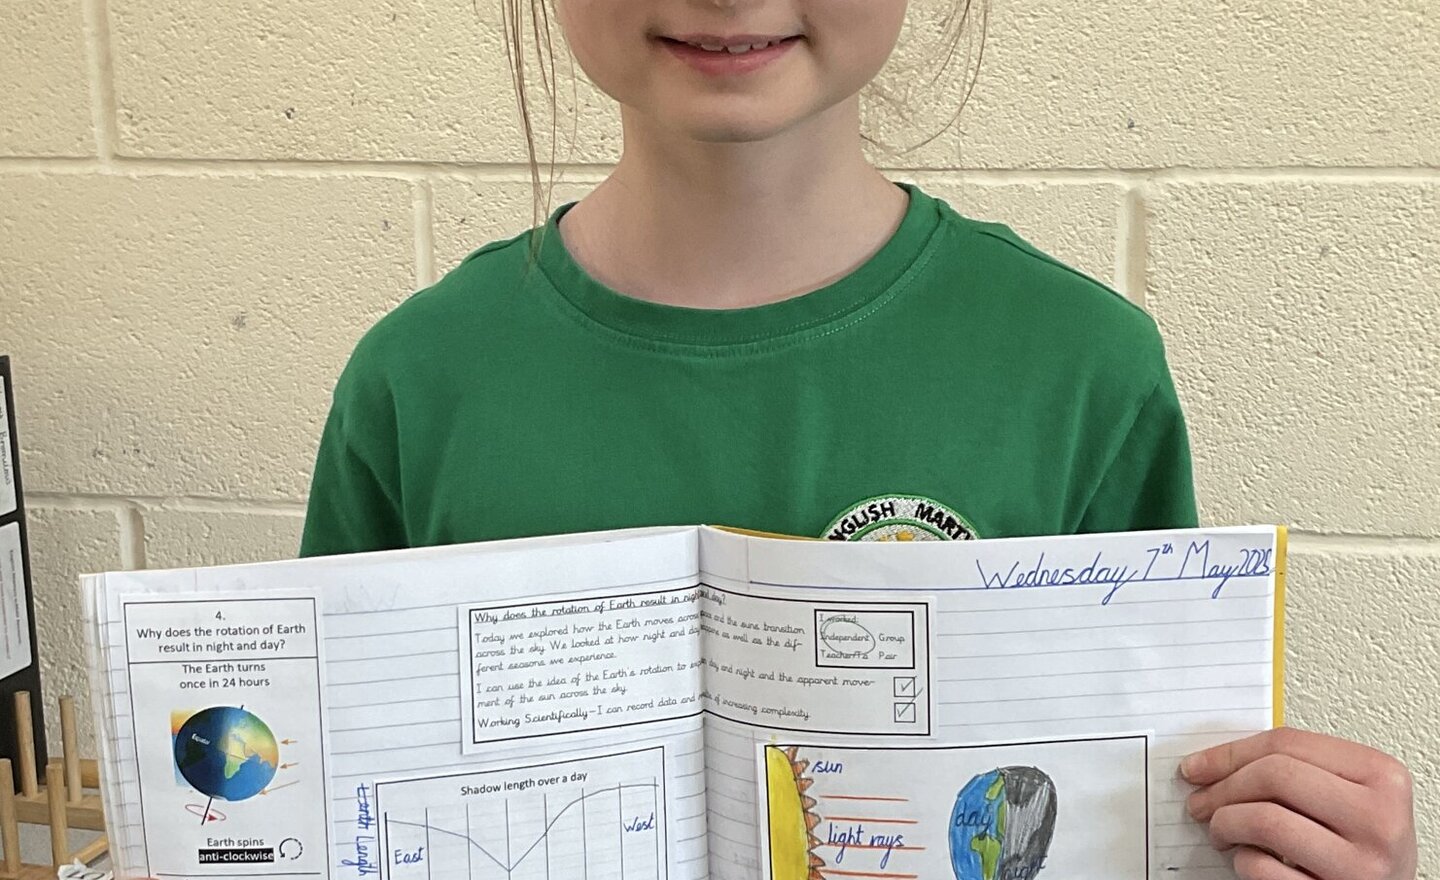 ENGLISH MARTY
Wednesday 7th May 2025
4.
Why does the rotation of Earth
result in night and day?
The Earth turns
once in 24 hours
Equator
Earth spins
anti-clockwise
Why does the rotation of Earth result in night and day?
Today we explored how the Earth moves across and the suns transition
across the sky. We looked at how night and day as well as the dif-
ferent seasons we experience.
I can use the idea of the Earth's rotation to explain day and night and the apparent move-
ment of the sun across the sky.
Working Scientifically-I can record data and of increasing complexity.
I worked:
Independent Group
Teacher/TA Pair
Shadow length over a day
East
West
Length
sun
light rays
day
night